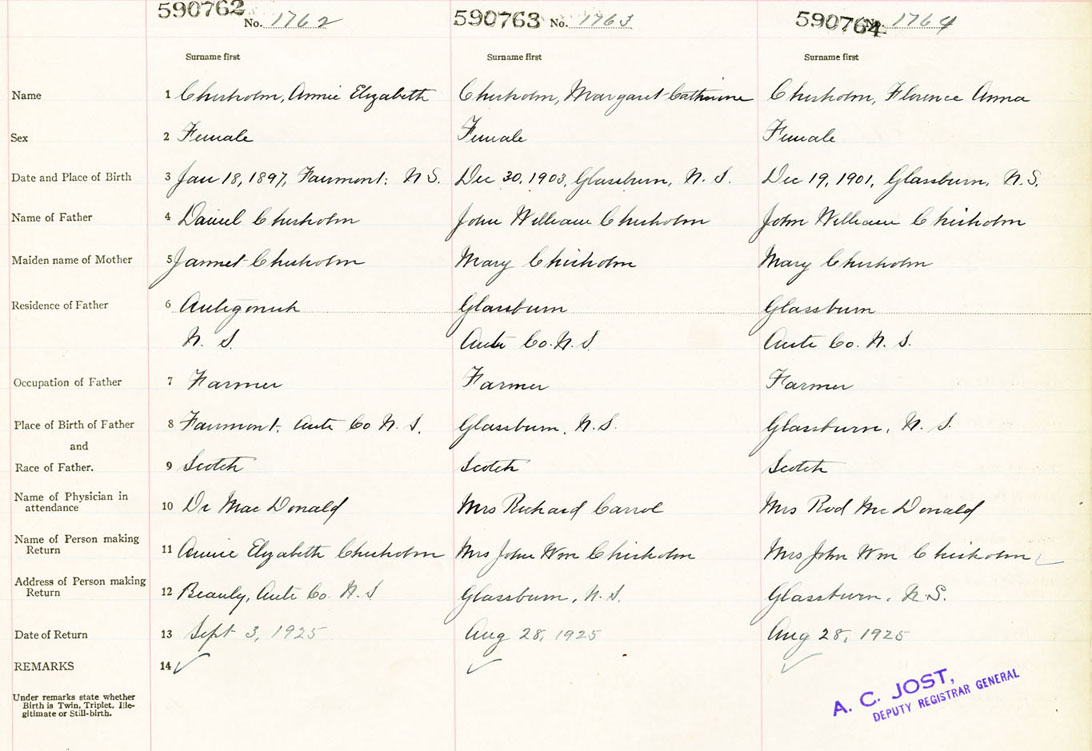 590762 No. 1762 590763 No. 1763 590764 No. 1764
Surname first Surname first Surname first
Name 1 Chisholm, Annie Elizabeth Chisholm, Margaret Catherine Chisholm, Florence Anna
Sex 2 Female Female Female
Date and Place of Birth 3 Jan 18, 1897, Fairmont, N.S. Dec 30, 1903, Glassburn, N.S. Dec 19, 1901, Glassburn, N.S.
Name of Father 4 Daniel Chisholm John William Chisholm John William Chisholm
Maiden name of Mother 5 Jannet Chisholm Mary Chisholm Mary Chisholm
Residence of Father 6 Antigonish Glassburn Glassburn
N. S. Anti Co. N. S. Anti Co. N. S.
Occupation of Father 7 Farmer Farmer Farmer
Place of Birth of Father 8 Fairmont, Anti Co N. S. Glassburn, N.S. Glassburn, N. S.
and
Race of Father. 9 Scotch Scotch Scotch
Name of Physician in
attendance 10 Dr MacDonald Mrs Richard Carrol Mrs Rod McDonald
Name of Person making
Return 11 Annie Elizabeth Chisholm Mrs John Wm Chisholm Mrs John Wm Chisholm
Address of Person making
Return 12 Beauly, Anti Co. N.S Glassburn, N.S. Glassburn, N.S.
Date of Return 13 Sept 3, 1925 Aug 28, 1925 Aug 28, 1925
REMARKS 14 ✓ ✓ ✓
Under remarks state whether
Birth is Twin, Triplet, Ille-
gitimate or Still-birth.
A. C. JOST,
DEPUTY REGISTRAR GENERAL